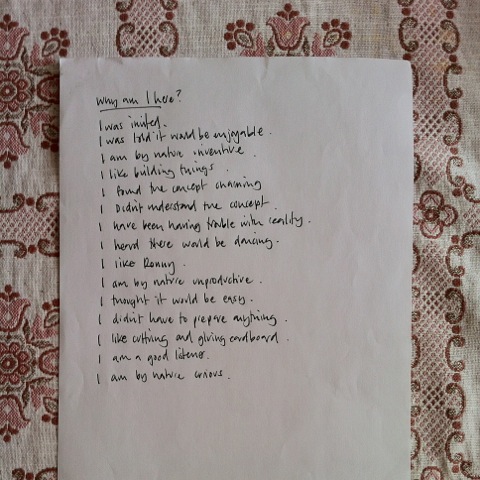 Why am I here?
I was invited.
I was told it would be enjoyable.
I am by nature inventive.
I like building things.
I found the concept charming
I Didn't understand the concept.
I have been having trouble with reality.
I heard there would be dancing.
I like Ronny.
I am by nature unproductive.
I thought it would be easy.
I didn't have to prepare anything.
I like cutting and gluing cardboard.
I am a good listener.
I am by nature curious.